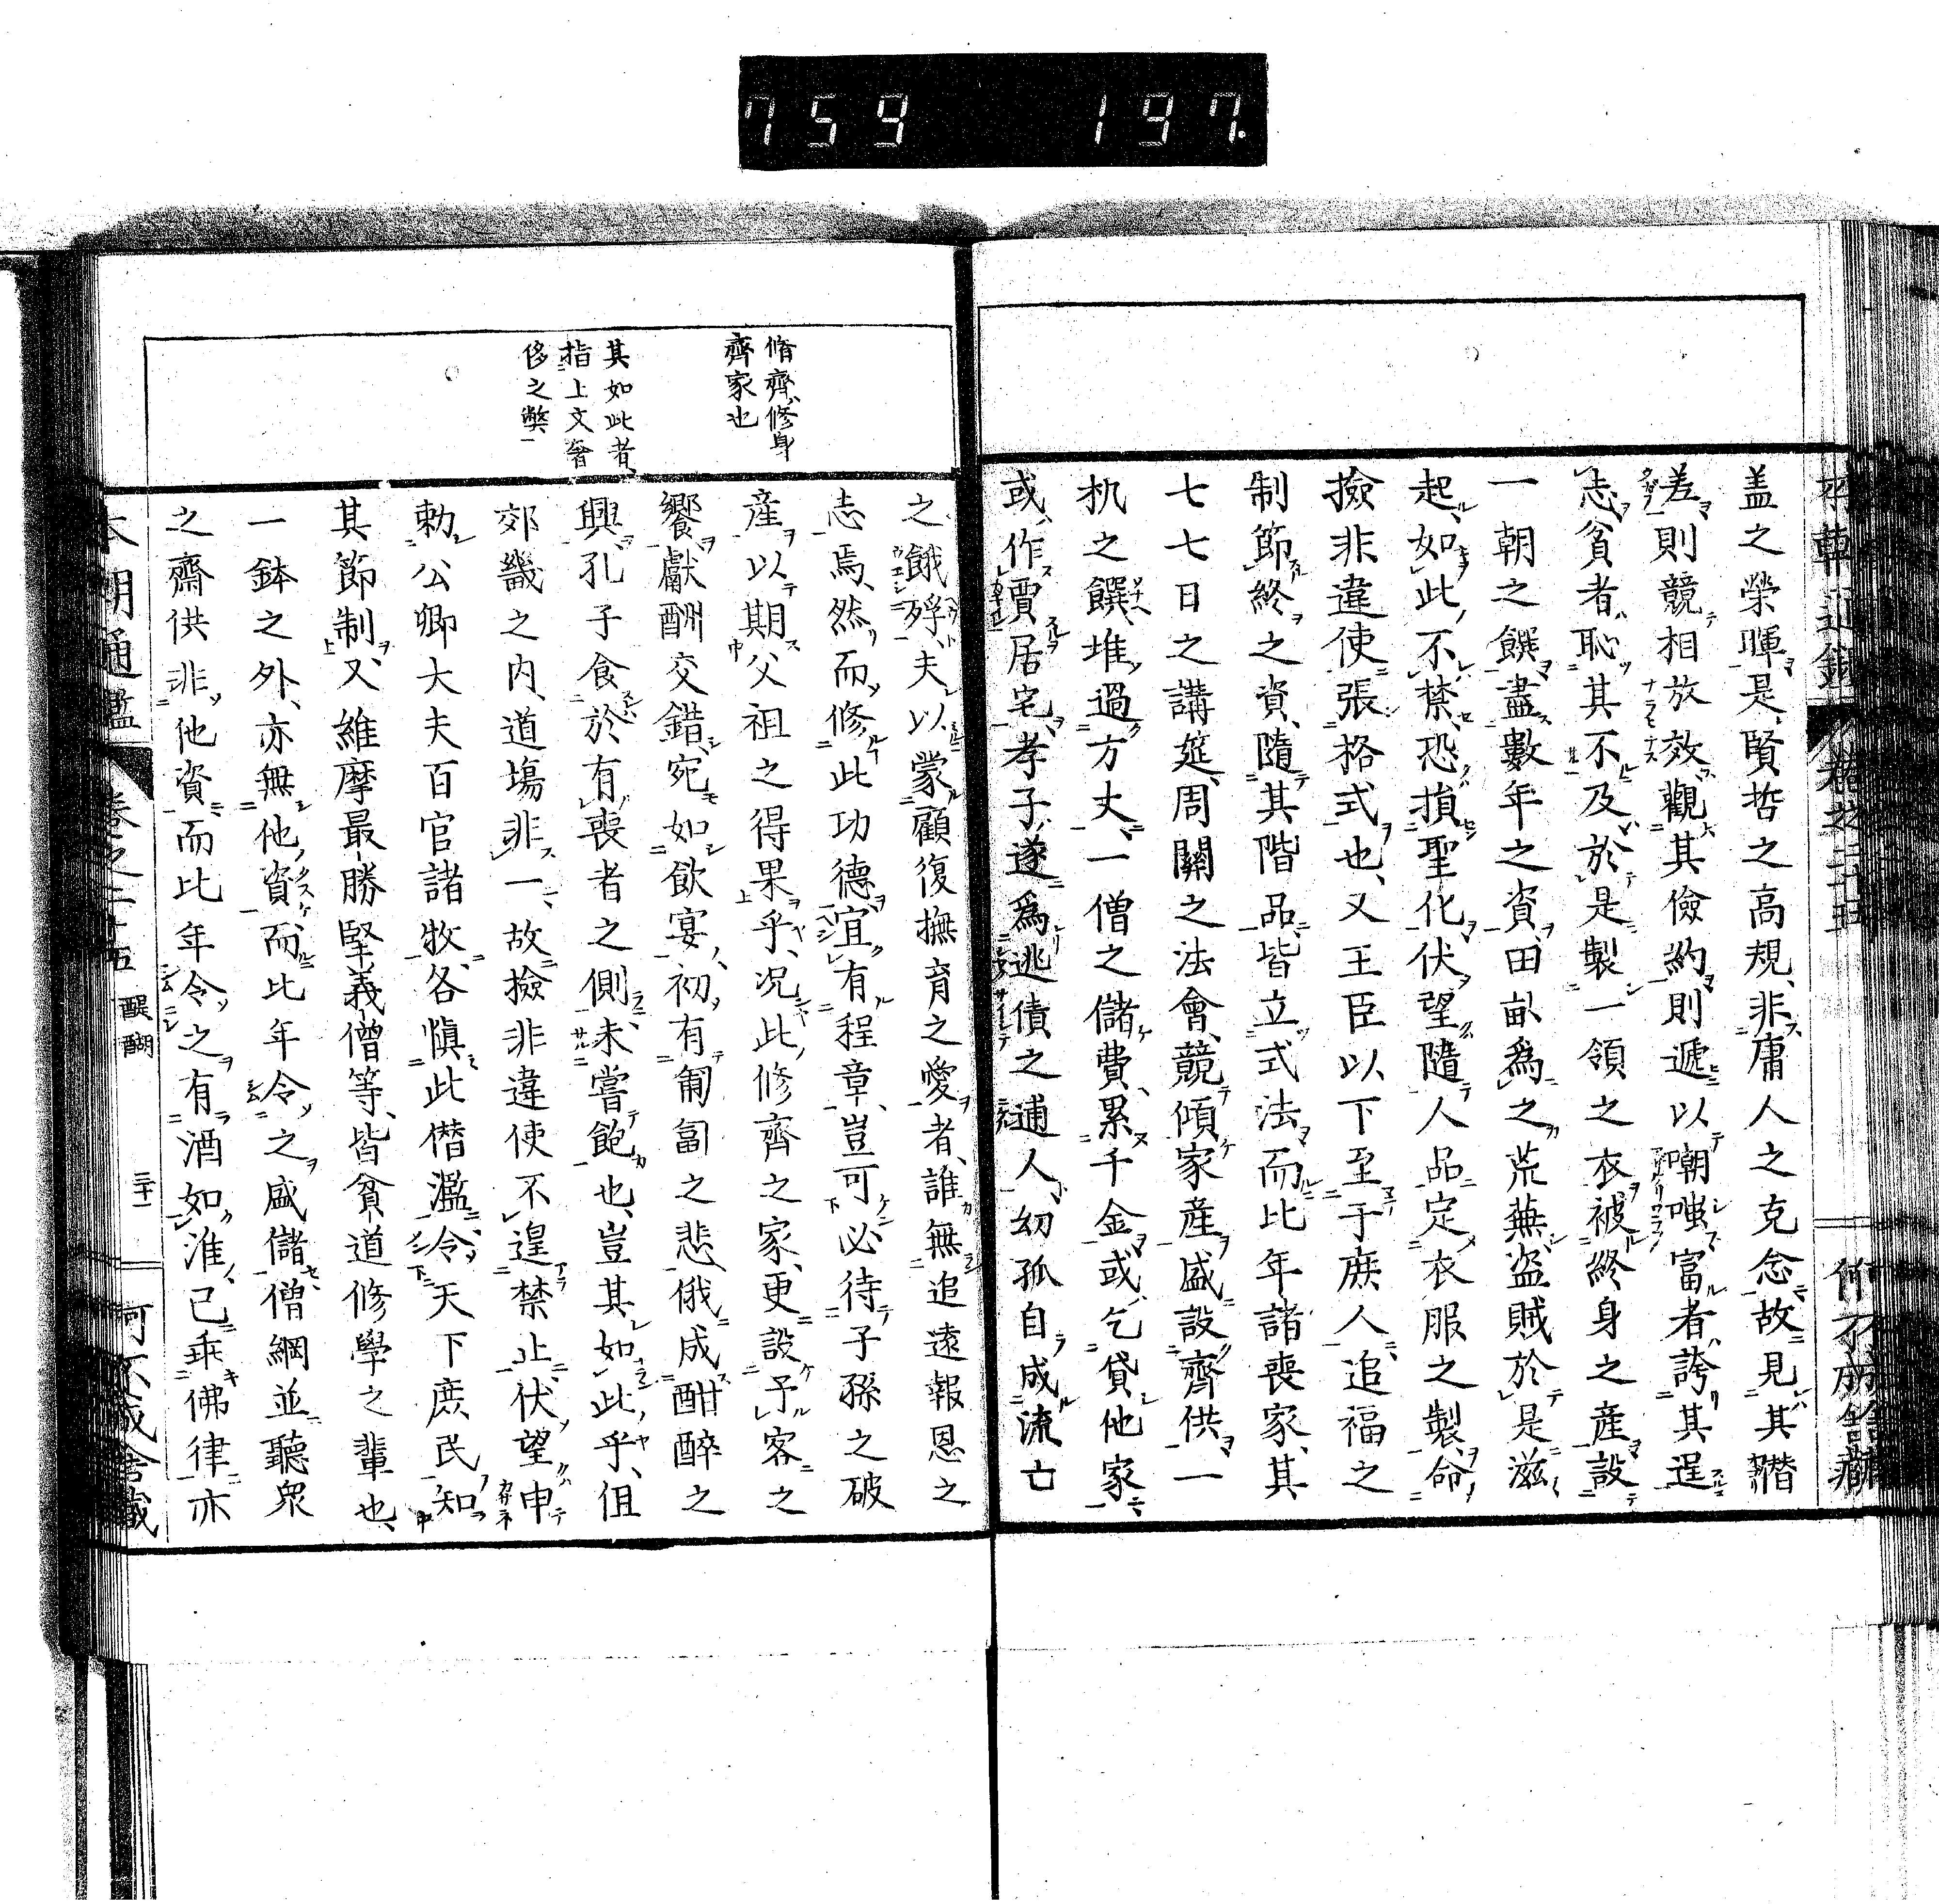 759 197.
盖之榮暉是賢哲之高規、非庸人之克念故見其潛
差則競相放效觀其儉約則遞以嘲嗤富者誇其逞
志貧者恥其不及於是製一領之衣被終身之產設
一朝之饌盡數年之資田畝爲之荒蕪盗賊於是滋
起如此不禁恐損聖化伏望隨人品定衣服之製命
撿非違使張格式也、又王臣以下至于庶人追福之
制節終之資隨其階品皆立式法而比年諸喪家、其
七七日之講筵、周關之法會、競傾家產盛設齊供一
机之饌堆過方丈、一僧之儲費、累千金或乞貸他家
或作賣居宅孝子遂爲逃債之逋人、幼孤自成流亡
脩齊、修身
齊家也
其如此者、
指上文奢
侈之弊
之餓殍、夫以蒙顧復撫育之愛者、誰無追遠報恩之
志焉、然而修此功德宜有程章、豈可必待子孫之破
產以期父祖之得果乎、况此修齊之家、更設予客之
饗獻酬交錯宛如飲宴、初有匍匐之悲俄成酣醉之
興孔子食於有喪者之側未嘗飽也、豈其如此乎、但
郊畿之内、道場非一故撿非違使不遑禁止伏望申
勅公卿大夫百官諸牧、各愼此僣濫令天下庶民知
其節制又維摩最勝堅義僧等、皆貧道修學之輩也、
一鉢之外、亦無他資而比年令之盛儲僧綱並聽衆
之齋供非他資而此年令之有酒如淮已乖佛律亦
本朝通鑑 卷之二十五 醍醐 三十一